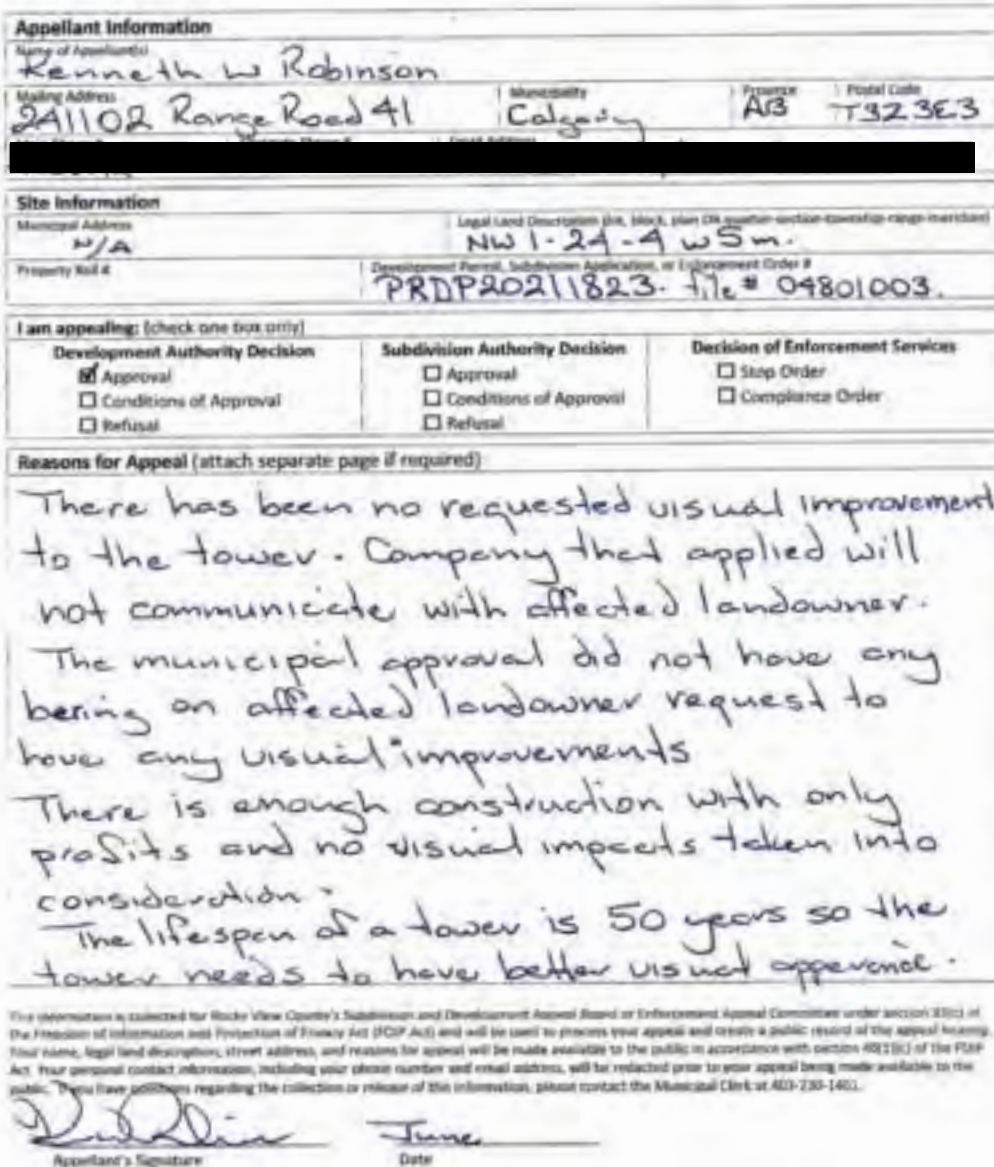 Appellant Information
Name of Appellant(s)
Kenneth W Robinson
Mailing Address Municipality Province Postal Code
241102 Range Road 41 Calgary AB T3Z3E3
Site Information
Municipal Address Legal Land Description (lot, block, plan OR quarter-section-township-range-meridian)
N/A NW 1-24-4 W5m.
Property Roll # Development Permit, Subdivision Application, or Enforcement Order #
PRDP20211823. file # 04801003.
I am appealing: (check one box only)
Development Authority Decision Subdivision Authority Decision Decision of Enforcement Services
☑ Approval ☐ Approval ☐ Stop Order
☐ Conditions of Approval ☐ Conditions of Approval ☐ Compliance Order
☐ Refusal ☐ Refusal
Reasons for Appeal (attach separate page if required)
There has been no requested visual improvement
to the tower. Company that applied will
not communicate with affected landowner.
The municipal approval did not have any
bering on affected landowner request to
have any visual improvements
There is enough construction with only
profits and no visual impacts taken into
consideration.
The lifespan of a tower is 50 years so the
tower needs to have better visual apperance.
This information is collected for Rocky View County's Subdivision and Development Appeal Board or Enforcement Appeal Committee under section 33(c) of
the Freedom of Information and Protection of Privacy Act (FOIP Act) and will be used to process your appeal and create a public record of the appeal hearing.
Your name, legal land description, street address, and reasons for appeal will be made available to the public in accordance with section 40(1)(c) of the FOIP
Act. Your personal contact information, including your phone number and email address, will be redacted prior to your appeal being made available to the
public. If you have questions regarding the collection or release of this information, please contact the Municipal Clerk at 403-230-1401.
June
Appellant's Signature Date